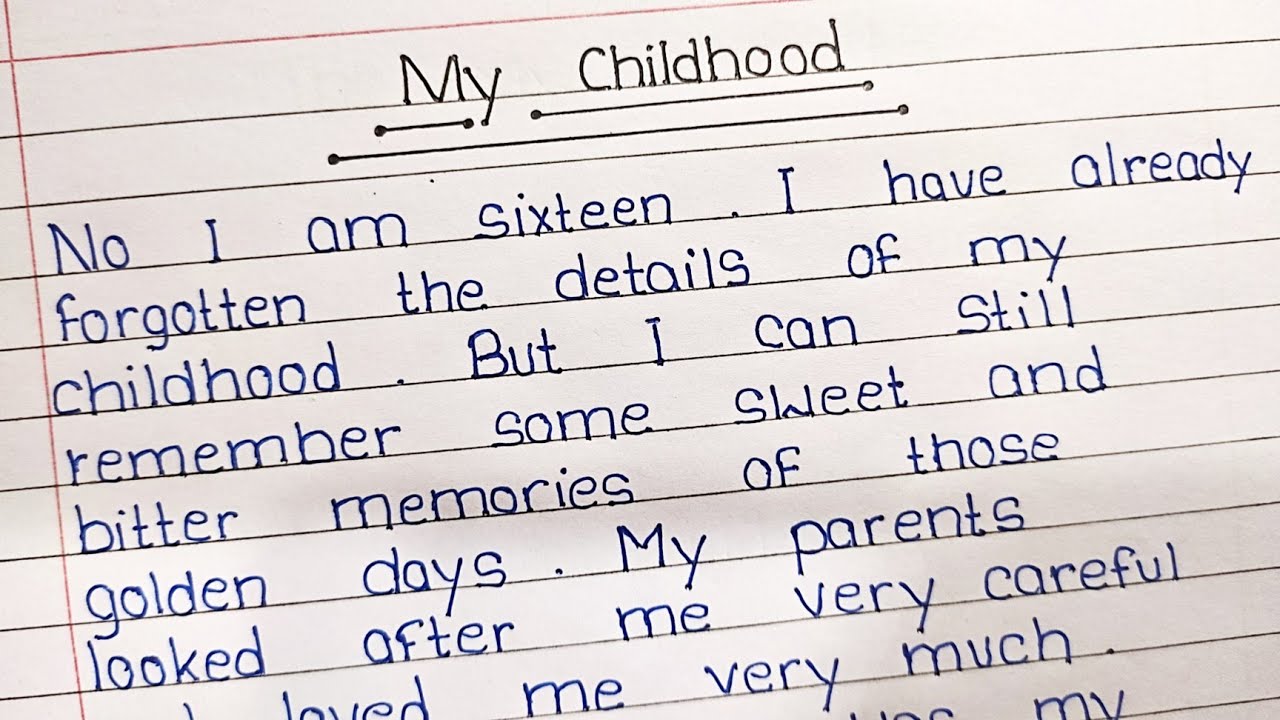 My Childhood
No I am sixteen . I have already
forgotten the details of my
childhood . But I can still
remember some sweet and
bitter memories of those
golden days . My parents
looked after me very careful
loved me very much .
my